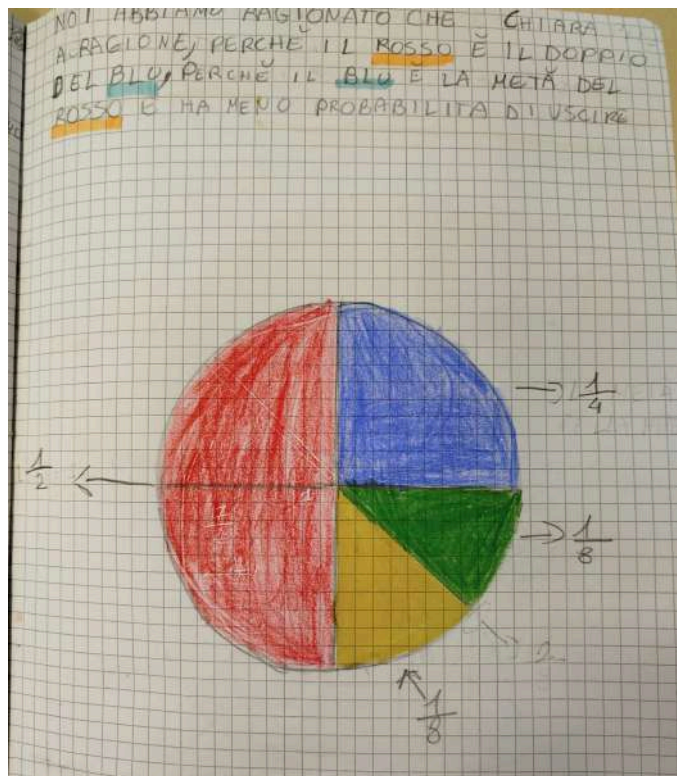 NOI ABBIAMO RAGIONATO CHE CHIARA
A RAGIONE, PERCHĔ IL ROSSO Ĕ IL DOPPIO
DEL BLU, PERCHĔ IL BLU Ĕ LA METĂ DEL
ROSSO E HA MENO PROBABILITA DI USCIRE
1/4
1/2
1/8
1/8